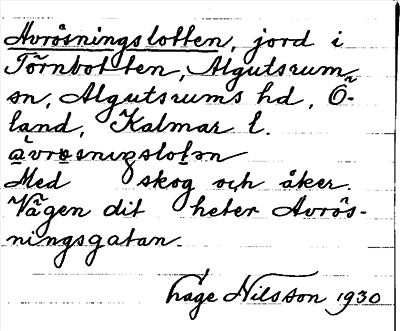 Avrösningslotten, jord i
Törnbotten, Algutsrum
sn, Algutsrums hd, Ö-
land, Kalmar l.
Med skog och åker.
Vägen dit heter Avrös-
ningsgatan.
Åage Nilsson 1930